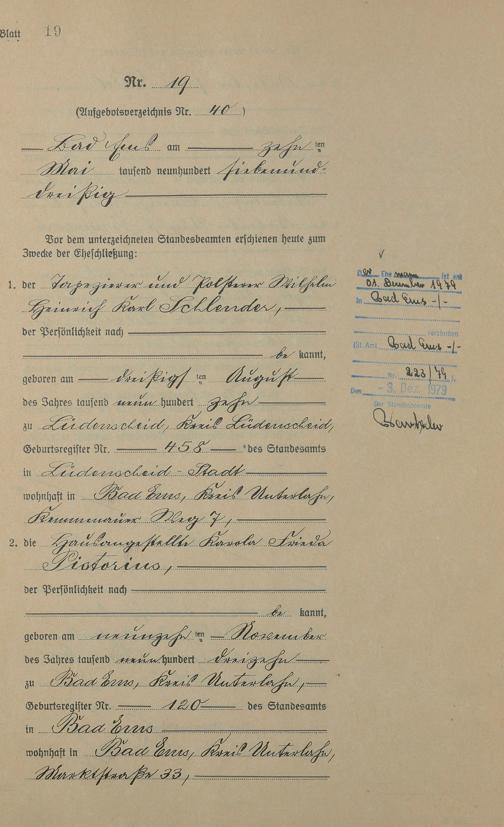 Blatt 19
Nr. 19
(Aufgebotsverzeichnis Nr. 40)
Bad Ems am zehnten
Mai tausend neunhundert siebenund-
dreißig
Vor dem unterzeichneten Standesbeamten erschienen heute zum
Zwecke der Eheschließung:
1. der Tapezierer und Polsterer Wilhelm
Heinrich Karl Schlender,
der Persönlichkeit nach
be kannt,
geboren am dreißigsten August
des Jahres tausend neun hundert zehn
zu Lüdenscheid, Kreis Lüdenscheid,
Geburtsregister Nr. 458 des Standesamts
in Lüdenscheid-Stadt
wohnhaft in Bad Ems, Kreis Unterlahn,
Kemmenauer Weg 7,
2. die Hausangestellte Karola Frieda
Pistorius,
der Persönlichkeit nach
be kannt,
geboren am neunzehnten November
des Jahres tausend neun hundert dreizehn
zu Bad Ems, Kreis Unterlahn,
Geburtsregister Nr. 120 des Standesamts
in Bad Ems
wohnhaft in Bad Ems, Kreis Unterlahn,
Marktstraße 33,
Der Ehemann ist am
01. Dezember 1979
in Bad Ems -/-
verstorben
St. Amt Bad Ems -/-
Nr. 223/79
Den - 3. Dez. 1979
Der Standesbeamte